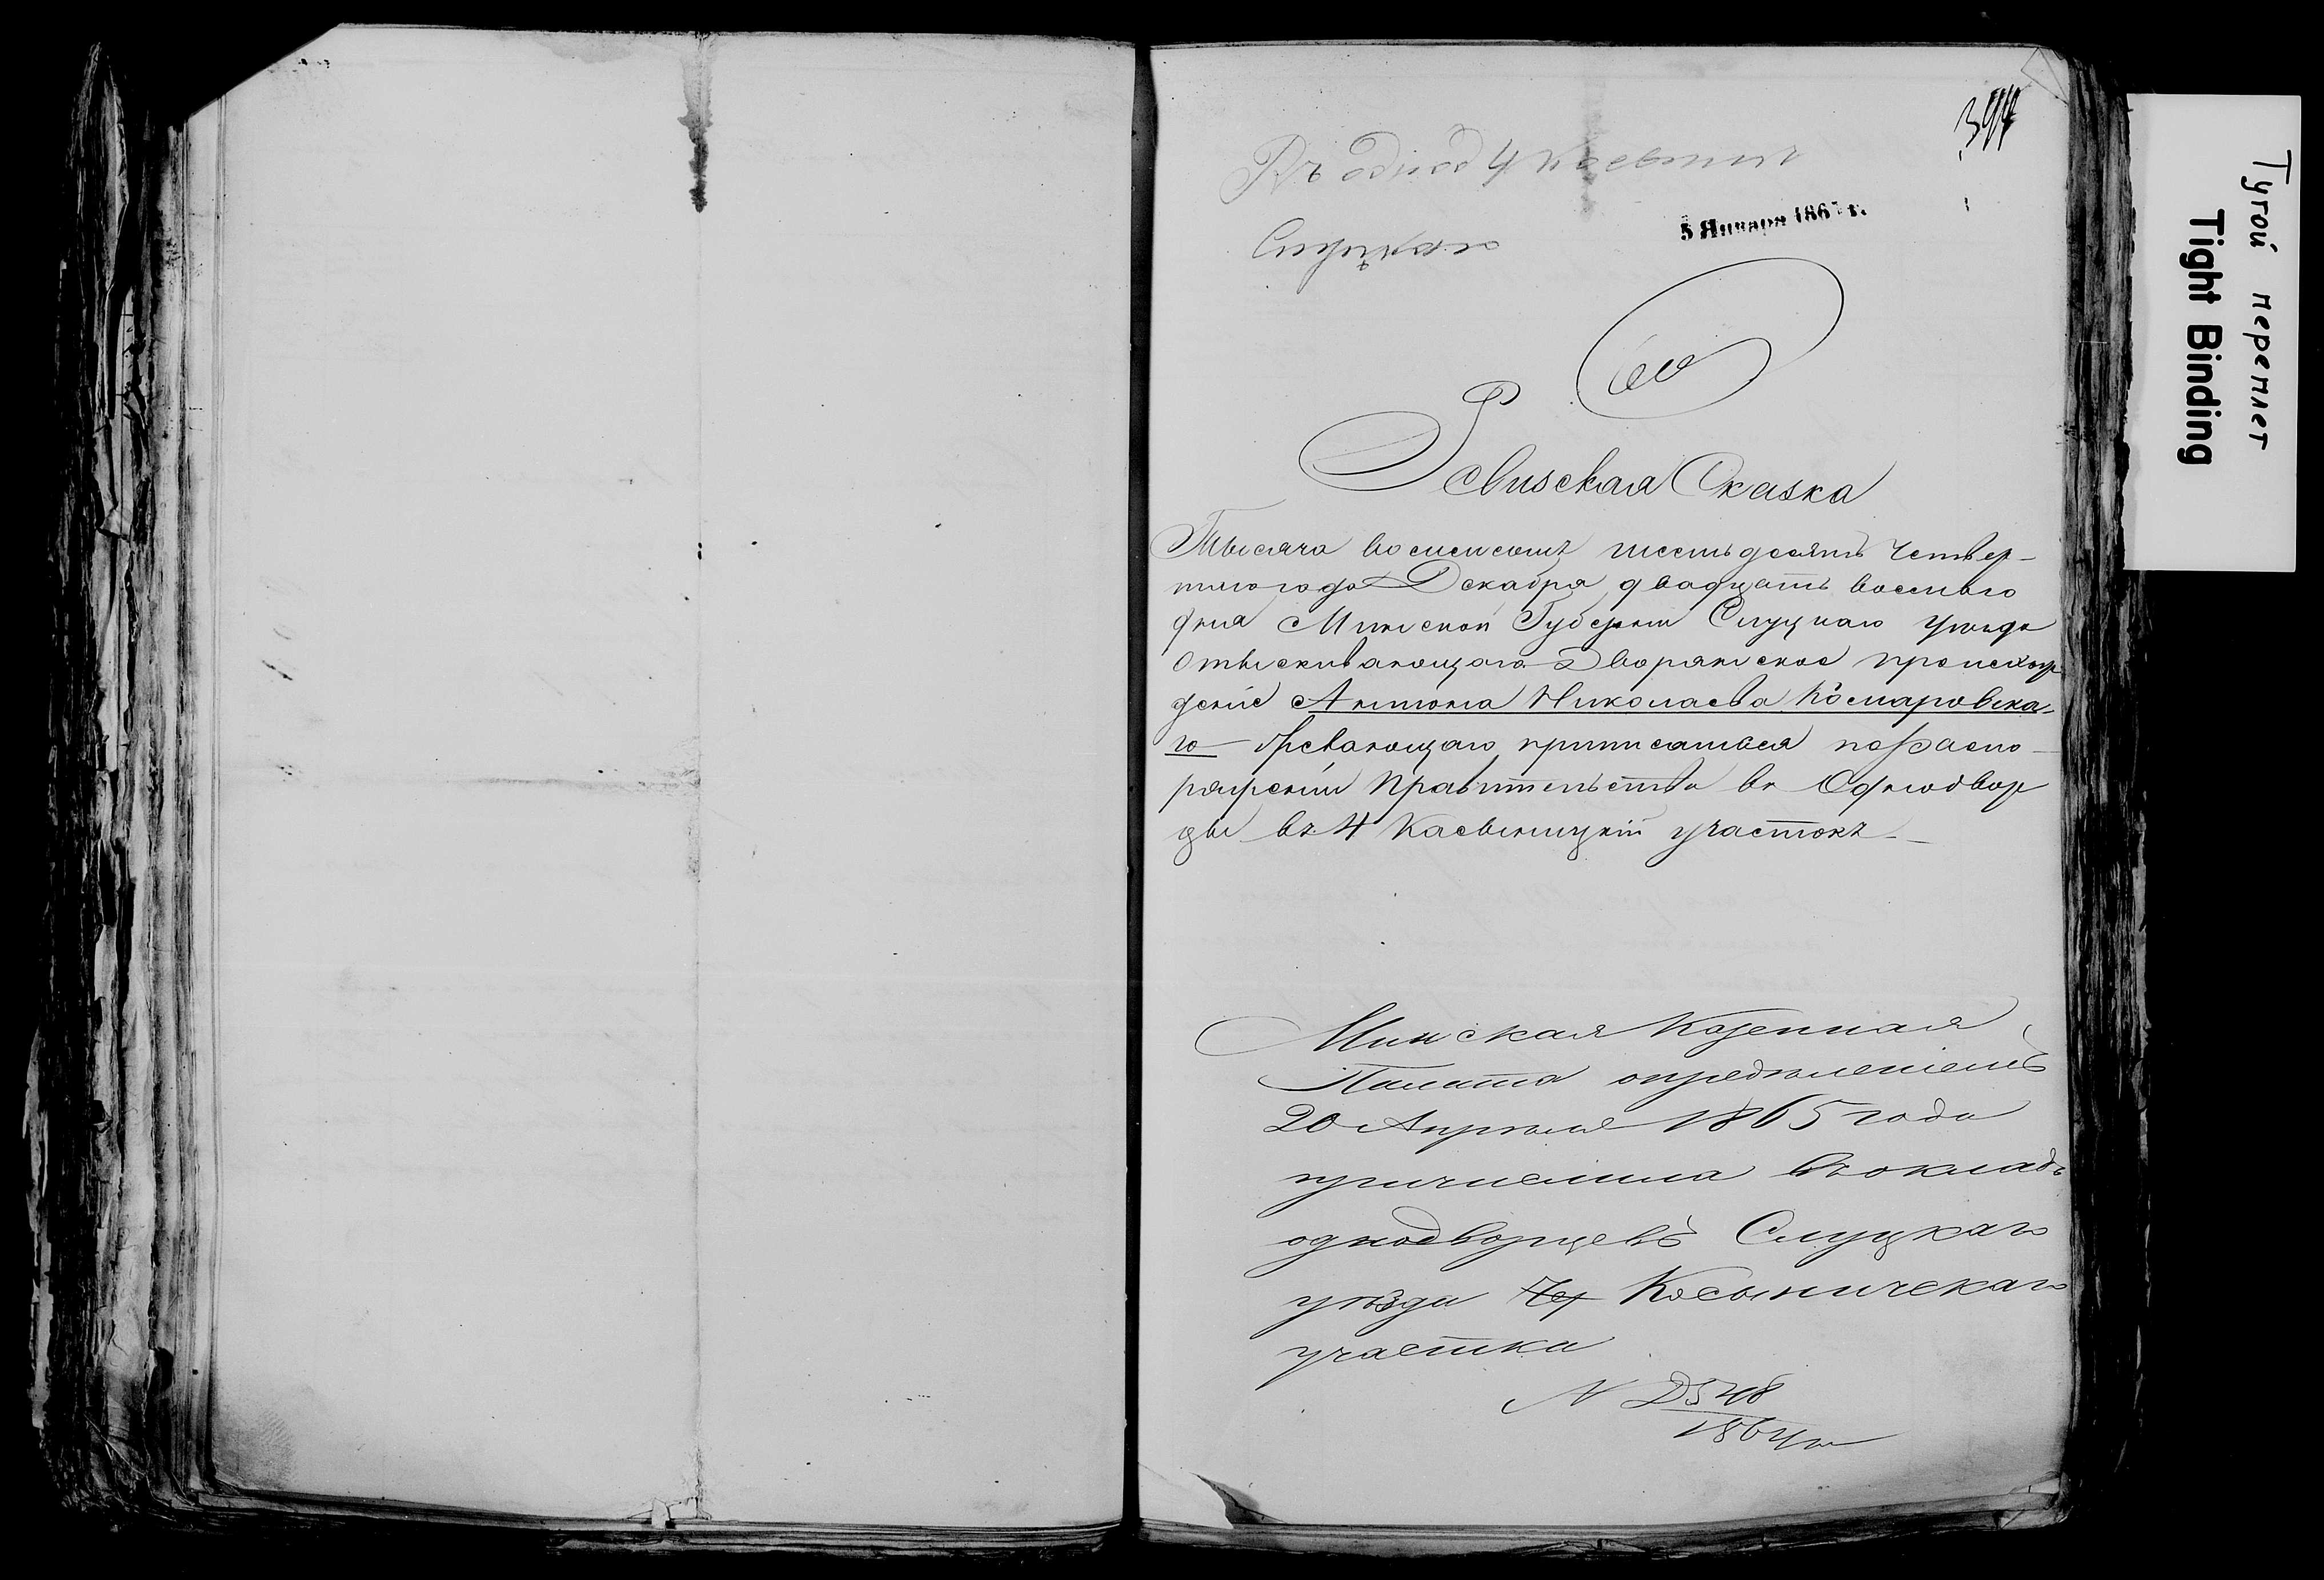 394
Къ однод 4 Касынич
Слуцкаго
5 Января 1865 г.
Ревизская Сказка
Тысяча восемсотъ шестьдесятъ четвер-
таго года Декабря двадцать восьмаго
дня Минской Губерніи Слуцкаго уѣзда
отыскивающаго Дворянское происхож
деніе Антона Николаева Комаровска-
го желающаго приписаться по распо-
ряженію Правительства въ Однодвор
цы въ 4 Касыницкій участокъ
Минская Казенная
Палата опредѣленіемъ
20 Апрѣля 1865 года
причислила въ окладъ
однодворцевъ Слуцкаго
уѣзда 4 Косыничскаго
участка
N D548
1864 г
Тугой переплет
Tight Binding